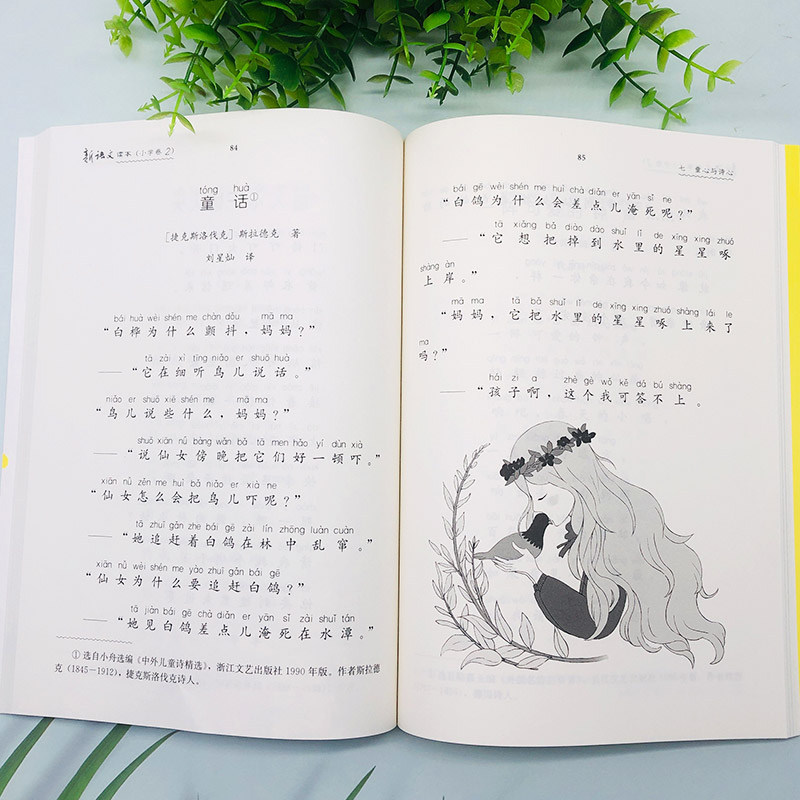 84
新语文读本(小学卷2)
tóng huà
童话①
[捷克斯洛伐克] 斯拉德克 著
刘星灿 译
bái huà wèi shén me chàn dǒu mā ma
“白桦为什么颤抖，妈妈？”
tā zài xì tīng niǎo er shuō huà
——“它在细听鸟儿说话。”
niǎo er shuō xiē shén me mā ma
“鸟儿说些什么，妈妈？”
shuō xiān nǚ bàng wǎn bǎ tā men hǎo yí dùn xià
——“说仙女傍晚把它们好一顿吓。”
xiān nǚ zěn me huì bǎ niǎo er xià ne
“仙女怎么会把鸟儿吓呢？”
tā zhuī gǎn zhe bái gē zài lín zhōng luàn cuàn
——“她追赶着白鸽在林中乱窜。”
xiān nǚ wèi shén me yào zhuī gǎn bái gē
“仙女为什么要追赶白鸽？”
tā jiàn bái gē chà diǎn er yān sǐ zài shuǐ tán
——“她见白鸽差点儿淹死在水潭。”
① 选自小舟选编《中外儿童诗精选》，浙江文艺出版社1990年版。作者斯拉德
克(1845—1912)，捷克斯洛伐克诗人。
85
七 童心与诗心
bái gē wèi shén me huì chà diǎn er yān sǐ ne
“白鸽为什么会差点儿淹死呢？”
tā xiǎng bǎ diào dào shuǐ lǐ de xīng xing zhuó
——“它想把掉到水里的星星啄
shàng àn
上岸。”
mā ma tā bǎ shuǐ lǐ de xīng xing zhuó shàng lái le
“妈妈，它把水里的星星啄上来了
ma
吗？”
hái zi a zhè gè wǒ kě dá bú shàng
——“孩子啊，这个我可答不上。